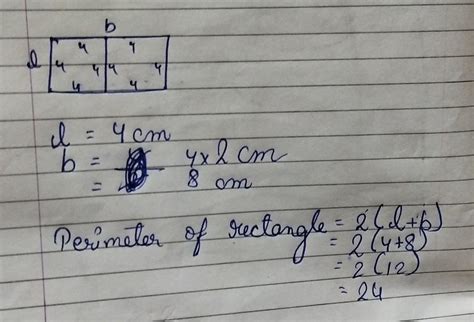 b
4 4
l 4 4 4 4
4 4
l = 4 cm
b = 4x2 cm
= 8 cm
Perimeter of rectangle = 2(l+b)
= 2(4+8)
= 2(12)
= 24